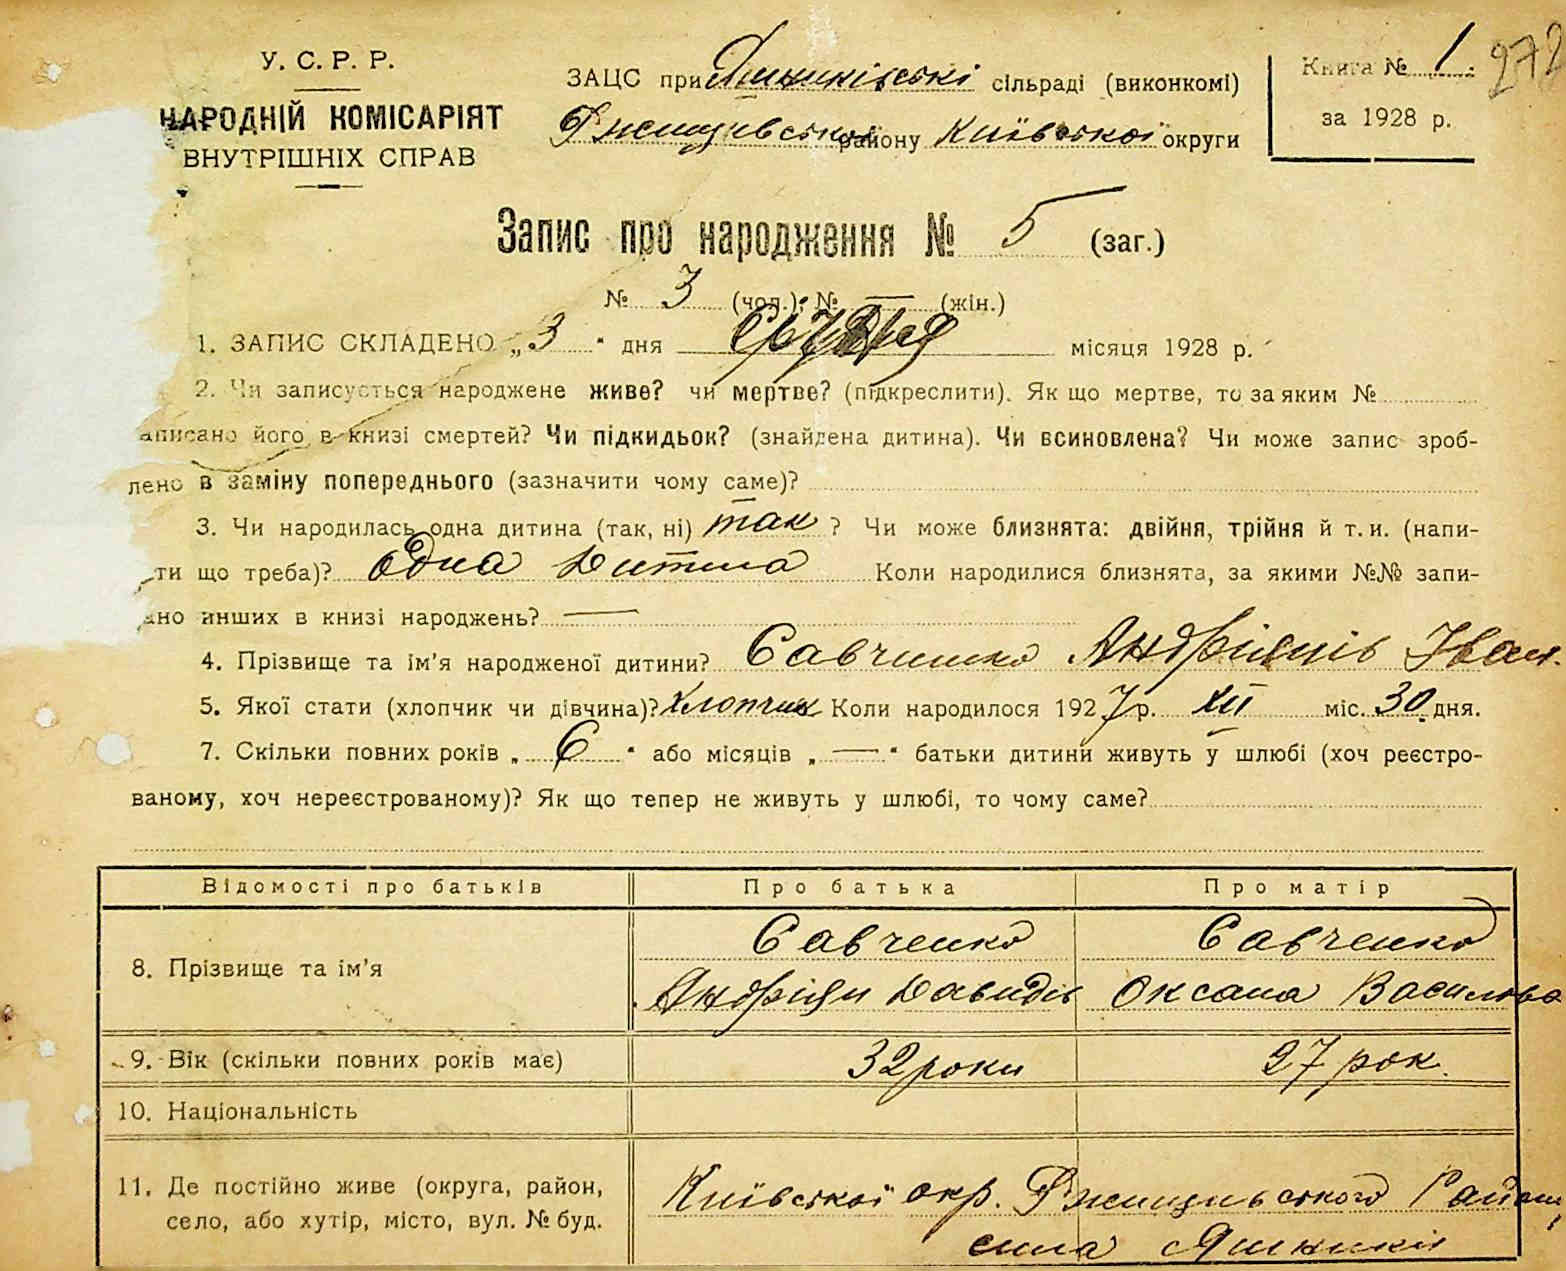 У. С. Р. Р.
НАРОДНІЙ КОМІСАРІЯТ
ВНУТРІШНІХ СПРАВ
ЗАЦС при Яшниківські сільраді (виконкомі)
Ржищивської району Київської округи
Книга № 1
за 1928 р.
272
Запис про народження № 5 (заг.)
№ 3 (чол.); № — (жін.)
1. ЗАПИС СКЛАДЕНО „3“ дня Січня місяця 1928 р.
2. Чи записується народжене живе? чи мертве? (підкреслити). Як що мертве, то за яким №
аписано його в книзі смертей? Чи підкидьок? (знайдена дитина). Чи всиновлена? Чи може запис зроб-
лено в заміну попереднього (зазначити чому саме)?
3. Чи народилась одна дитина (так, ні) так ? Чи може близнята: двійня, трійня й т. и. (напи-
ти що треба)? Одна Дитина Коли народилися близнята, за якими №№ запи-
ано инших в книзі народжень? —
4. Прізвище та ім'я народженої дитини? Савчинко Андріїнів Іван.
5. Якої стати (хлопчик чи дівчина)? Хлопчик Коли народилося 1927 р. XII міс. 30 дня.
7. Скільки повних років „6“ або місяців „—“ батьки дитини живуть у шлюбі (хоч реєстро-
ваному, хоч нереєстрованому)? Як що тепер не живуть у шлюбі, то чому саме?
Відомості про батьків Про батька Про матір
8. Прізвище та ім'я
Савченко Савченко
Андріян Давидів Оксана Василова
9. Вік (скільки повних років має) 32 роки 27 рок.
10. Національність
11. Де постійно живе (округа, район,
село, або хутір, місто, вул. № буд.
Київської окр. Ржищивського Району,
сила Яшники